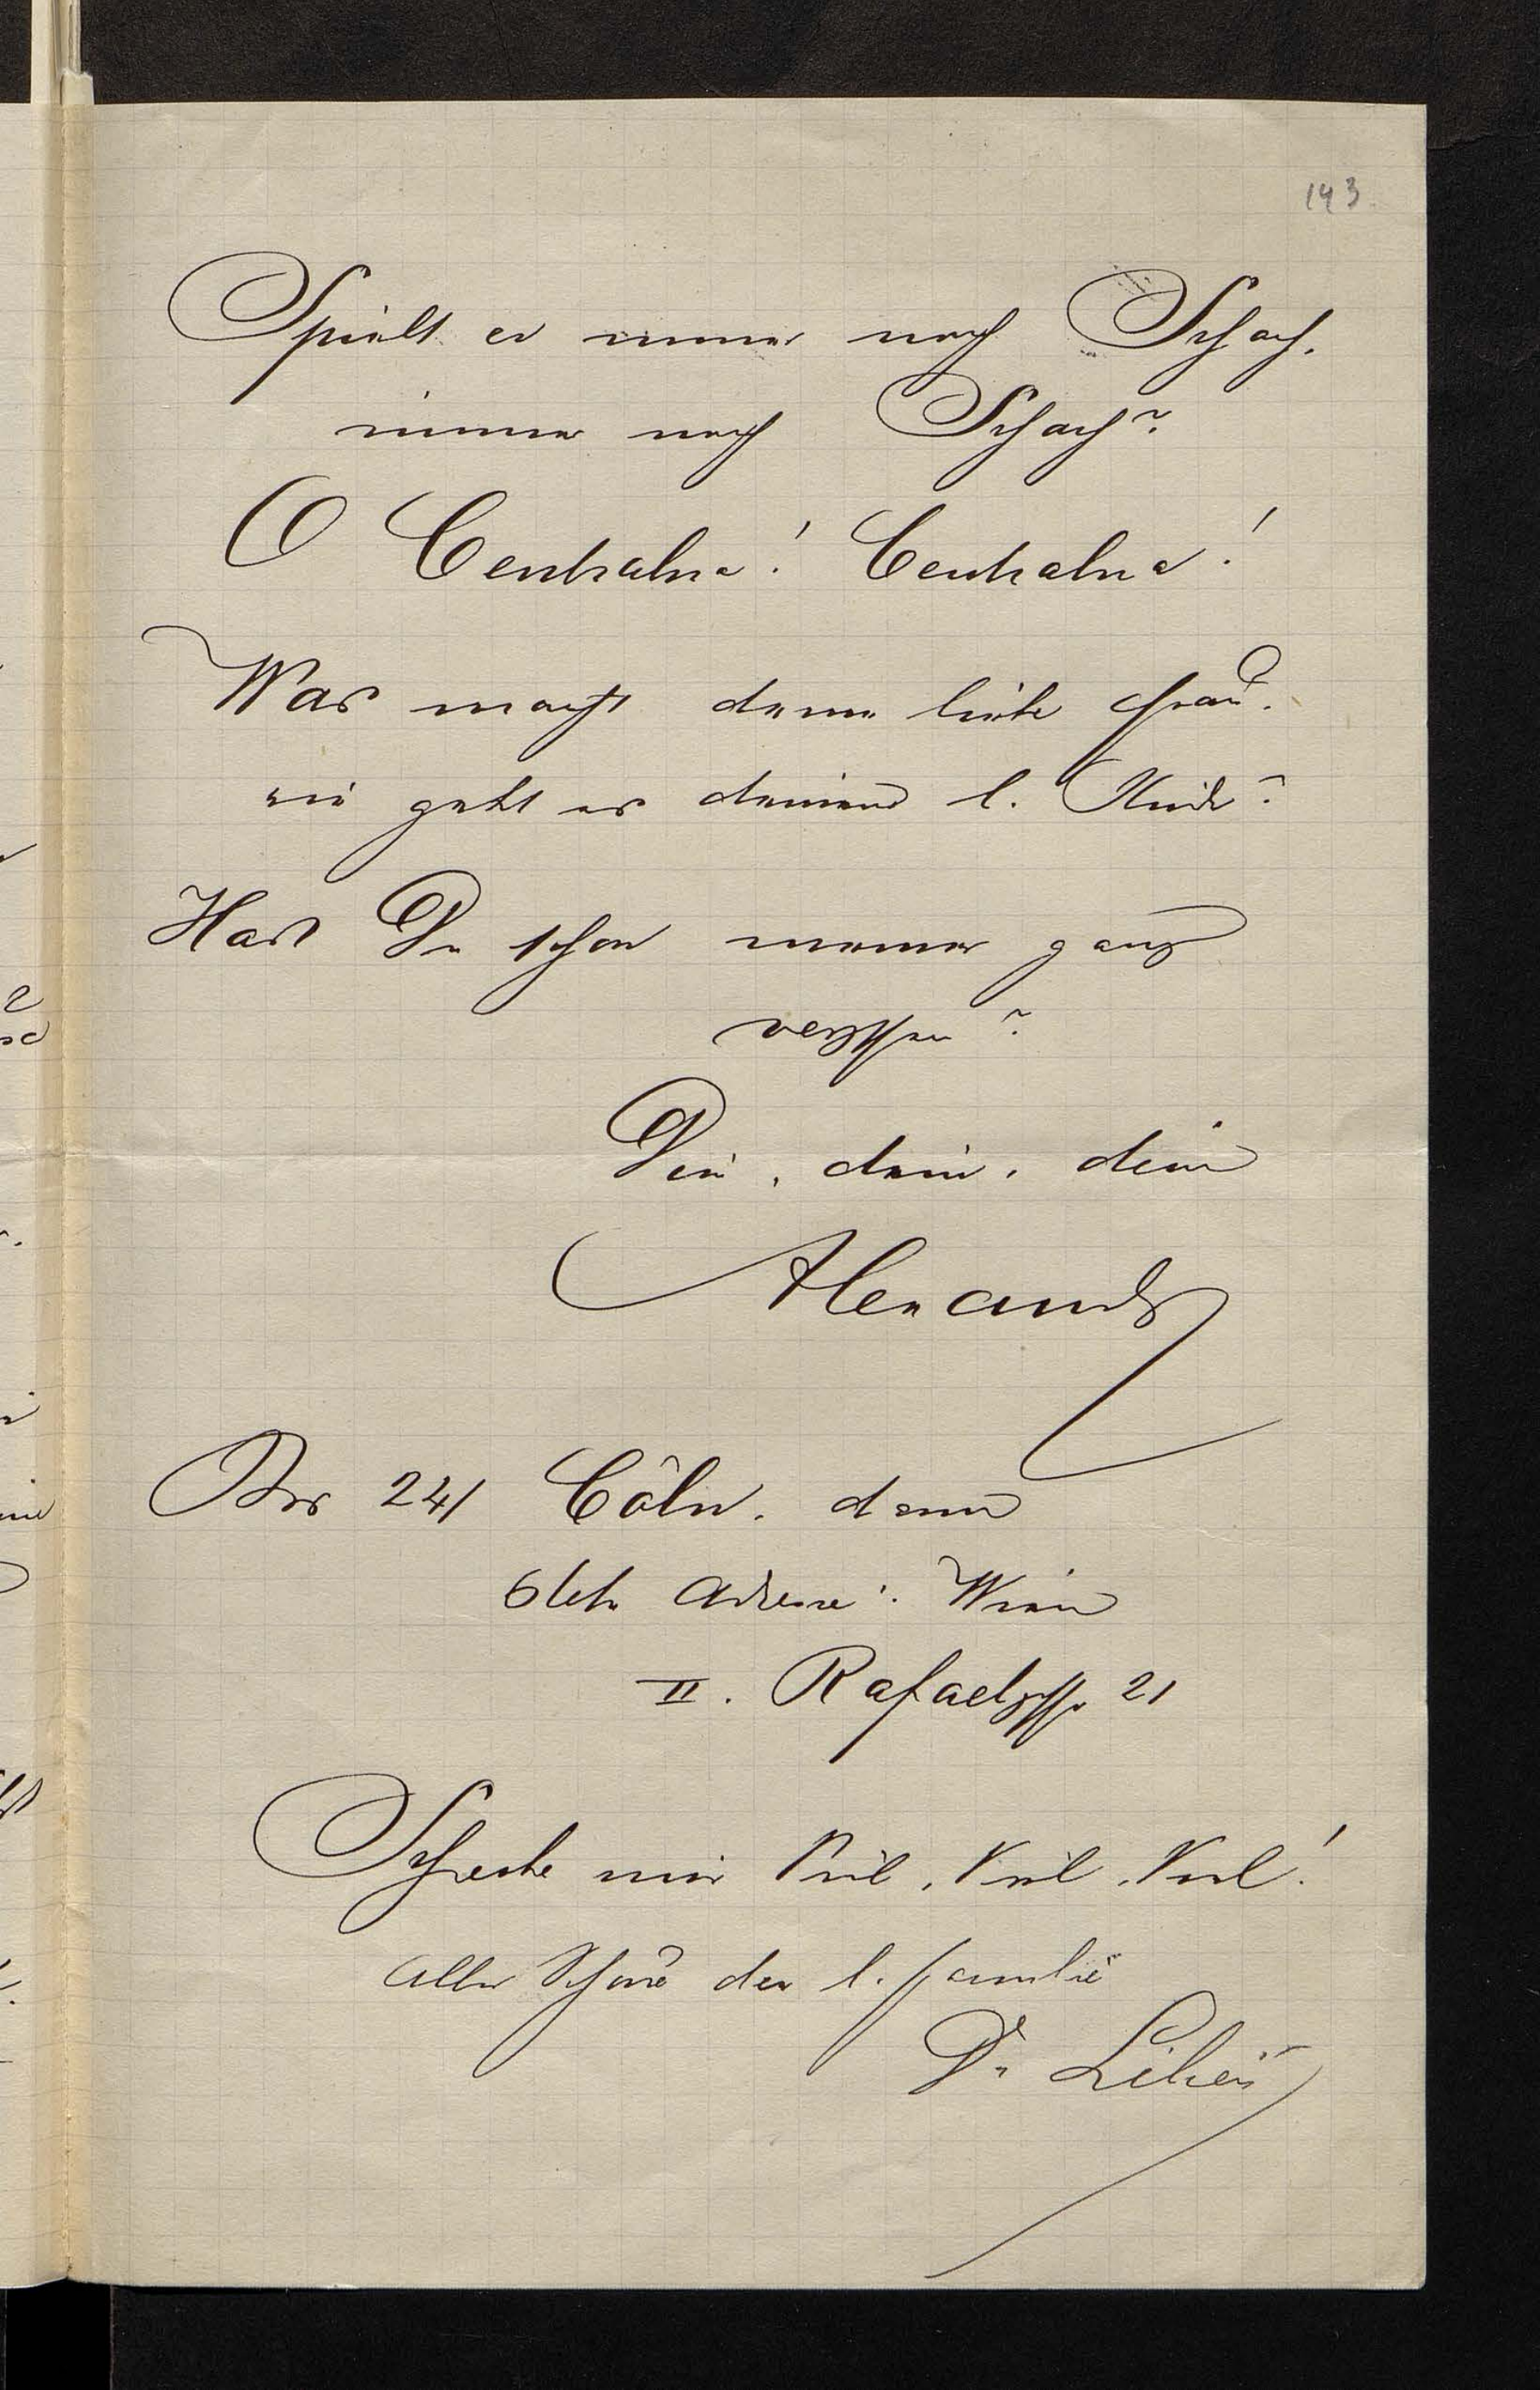 143
Spielt er immer noch Schach,
immer noch Schach?
O Centralna! Centralna!
Was macht deine liebe Frau,
wie geht es deinem l. Kinde?
Hast Du schon meiner ganz
vergessen?
Dein, dein, dein
Alexander
Bis 24/ Cöln, dann
Adresse: Wien
II. Rafaelgasse 21
Schreibe mir Viel, Viel, Viel!
Alles Schöne der l. Familie
Dr